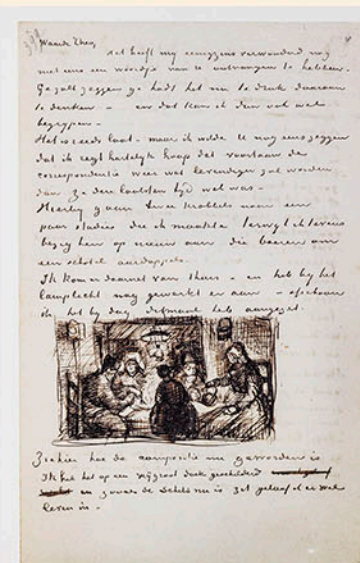 Waarde Theo,
het heeft mij eenigzins verwonderd nog
niet eens een woordje van U ontvangen te hebben.
Ge zult zeggen ge hadt het nu te druk daaraan
te denken – en dat kan ik dan ook wel
begrijpen –
Het is reeds laat – maar ik wilde U nog eens zeggen
dat ik regt hartelijk hoop dat voortaan de
correspondentie weer wat levendiger zal worden
dan ze den laatsten tijd wel was –
Hierbij gaan twee krabbels naar een
paar studies die ik maakte terwijl ik tevens
bezig ben op nieuw aan die boeren om
een schotel aardappels.
Ik kom er daarnet van thuis – en heb bij het
lamplicht nog gewerkt er aan – ofschoon
ik het bij dag ditmaal heb aangezet.
Ziehier hoe de compositie nu geworden is
Ik heb het op een vrij groot doek geschilderd
en zooals de schets nu is zit geloof ik er wel
leven in –